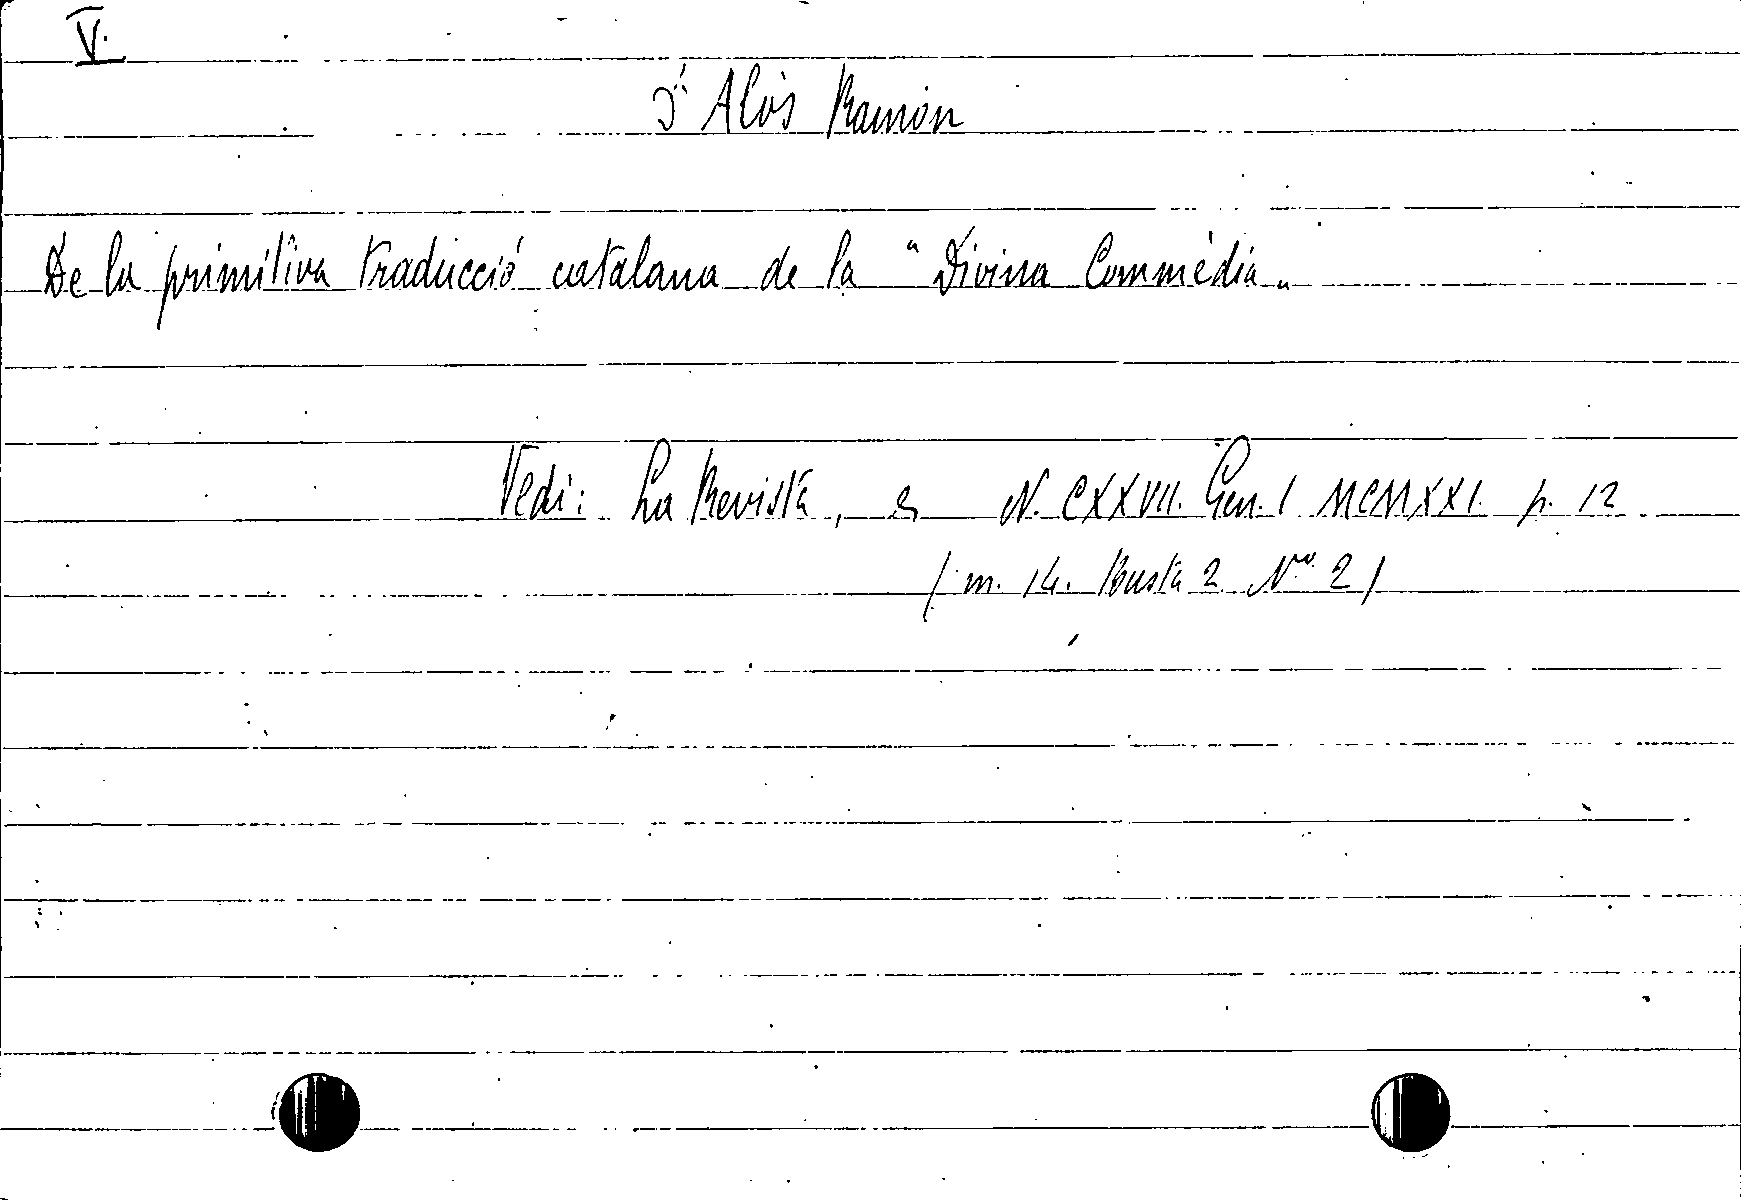 V.
D'Alòs Ramòn
De la primitiva traducció catalana de la "Divina Commèdia"
Vedi: La Revista, N. CXXVII. Gen. 1 MCMXXI. p. 12
(m. 14. Busta 2 N.ro 2)